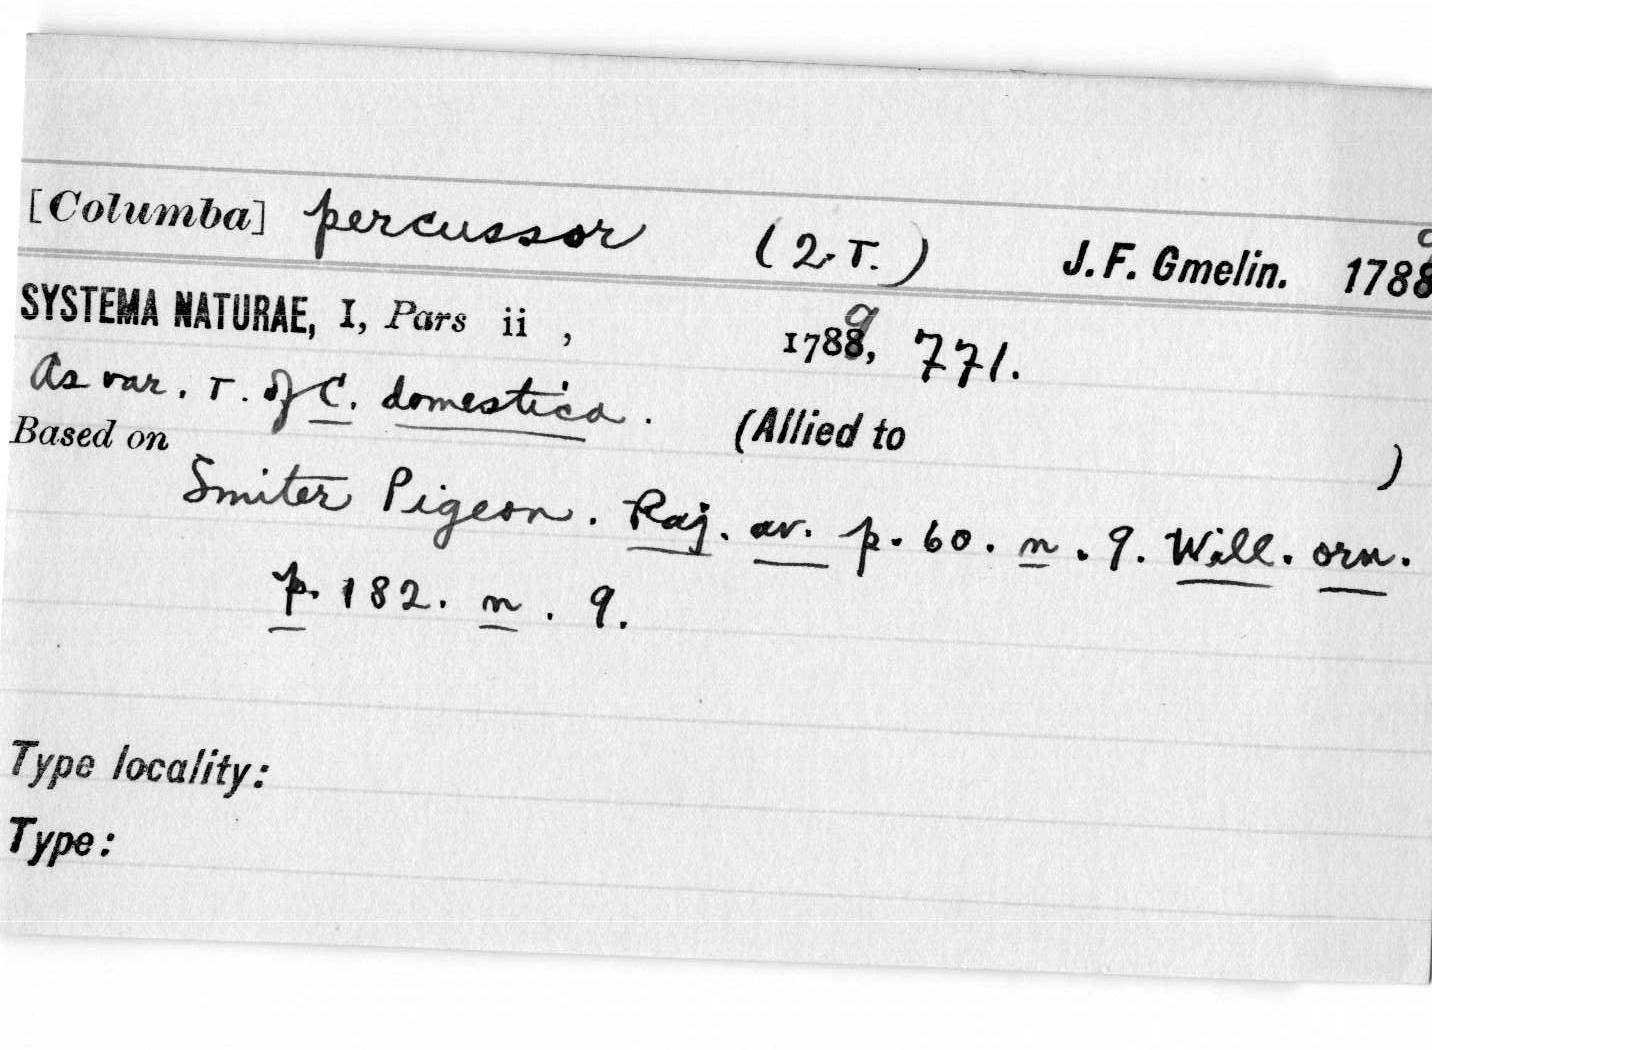 [Columba] percussor (2. τ.) J. F. Gmelin. 1789
SYSTEMA NATURAE, I, Pars ii , 1789, 771.
As var. τ. of C. domestica. (Allied to )
Based on
Smiter Pigeon. Raj. av. p. 60. n. 9. Will. orn.
p. 182. n. 9.
Type locality:
Type: